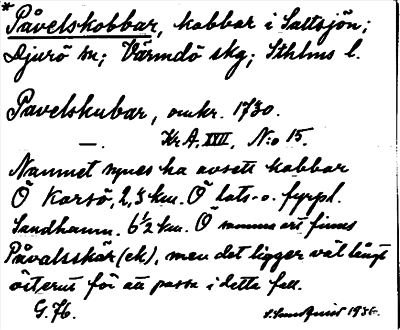 * Påvelskobbar, kobbar i Saltsjön;
Djurö sn; Värmdö skg; Sthlms l.
Pavelskubar, omkr. 1730.
—. Kr.A. XVII, N:o 15.
Namnet synes ha avsett kobbar
Ö Korsö, 2,3 km. Ö lots- o. fyrpl.
Sandhamn. 6½ km. Ö samma ort finnes
Påvalsskär (ek), men det ligger väl långt
österut för att passa i detta fall.
G. 76. 1936.